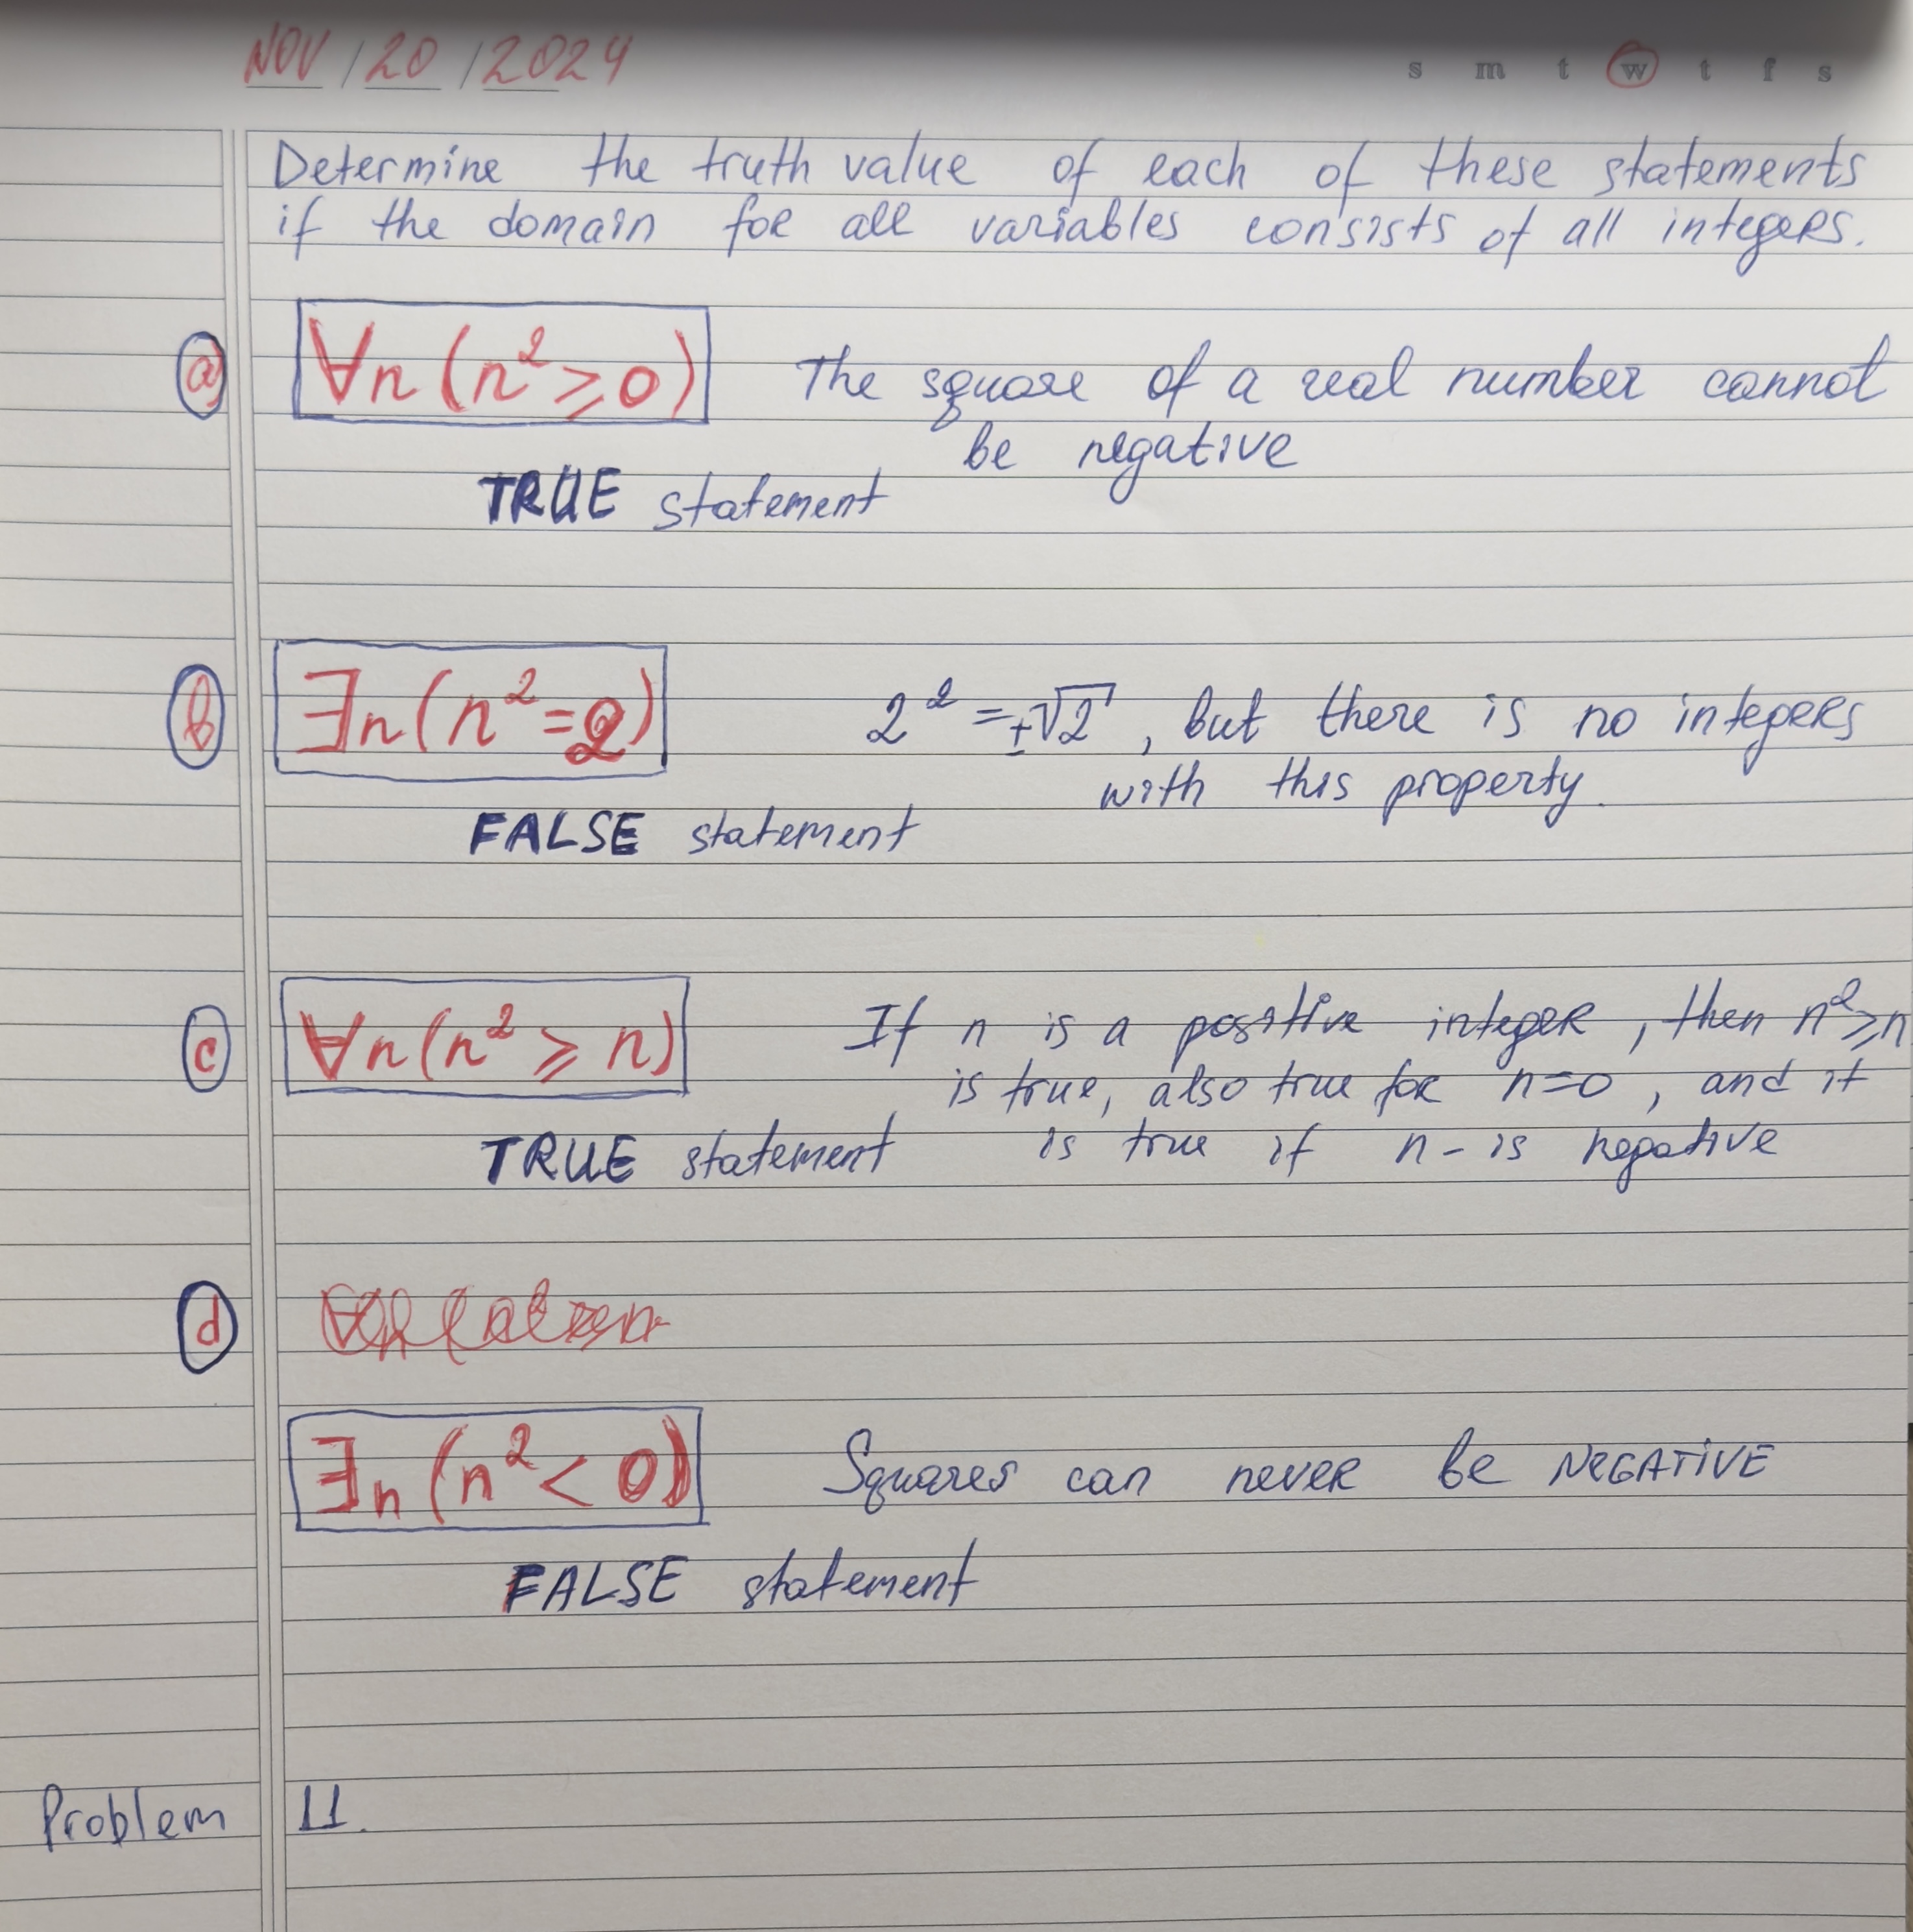 NOV / 20 / 2024
s m t w t f s
Determine the truth value of each of these statements
if the domain for all variables consists of all integers.
a ∀n(n²≥0) The square of a real number cannot
be negative
TRUE statement
b ∃n(n²=2) 2² = ±√2, but there is no integers
with this property.
FALSE statement
c ∀n(n² ≥ n) If n is a positive integer, then n²≥n
is true, also true for n=0, and it
TRUE statement is true if n - is negative
d
∃n(n² < 0) Squares can never be NEGATIVE
FALSE statement
Problem 11.